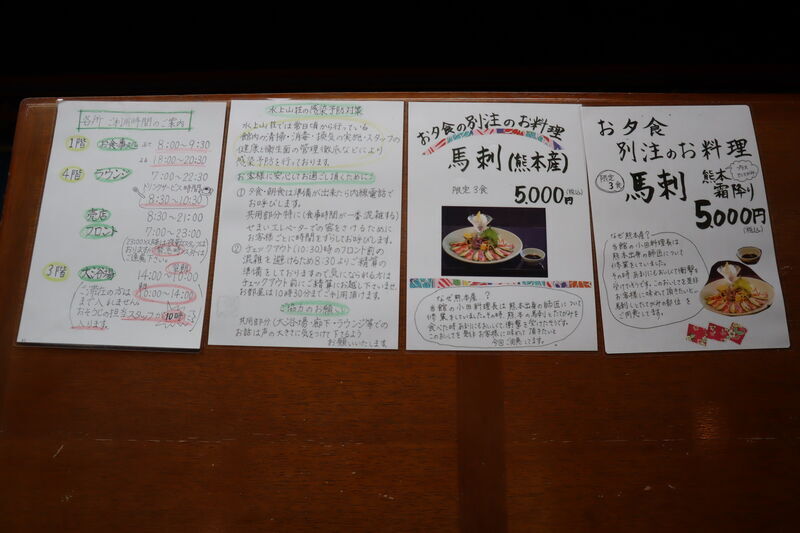 各所 ご利用時間のご案内
1階 お食事処 8:00〜9:30
18:00〜20:30
4階 ラウンジ 7:00〜22:30
ドリンクサービス時間
8:30〜10:30
売店 8:30〜21:00
フロント 7:00〜23:00
3階 大浴場 14:00〜10:00
10:00〜14:00
水上山荘の感染予防対策
水上山荘では常日頃から行っている
館内の清掃・消毒・換気の実施・スタッフの
健康と衛生面の管理徹底などにより
感染予防を行っております。
お客様に安心してお過ごし頂くために
① 夕食・朝食は準備が出来たら内線電話で
お呼びします。
共用部分特に(食事時間が一番混雑する)
せまいエレベーターでの密をさけるために
お客様ごとに時間をずらしてお呼びします。
② チェックアウト(10:30)時のフロント前の
混雑を避けるため8:30よりご精算の
準備をしておりますので気になられる方は
チェックアウト前にご精算にお越し下さいませ。
お部屋は10時30分までご利用頂けます。
ご協力のお願い
共用部分(大浴場・廊下・ラウンジ等)での
お話は声の大きさに気をつけて下さるよう
お願いいたします。
お夕食の別注のお料理
馬刺(熊本産)
限定3食 5,000円(税込)
なぜ熊本産?
当館の小田料理長は熊本出身の師匠について
修業をしていました。その時、熊本の馬刺したてがみを
お夕食
別注のお料理
限定3食 馬刺 熊本
霜降り
5,000円
(税込)
なぜ熊本産?
当館の小田料理長は
熊本出身の師匠について
修業をしていました。
その時あまりにもおいしくて衝撃を
受けたそうです。このおいしさを是非
お客様に味わって頂きたいと
馬刺しとたてがみの部位を
ご用意してます。